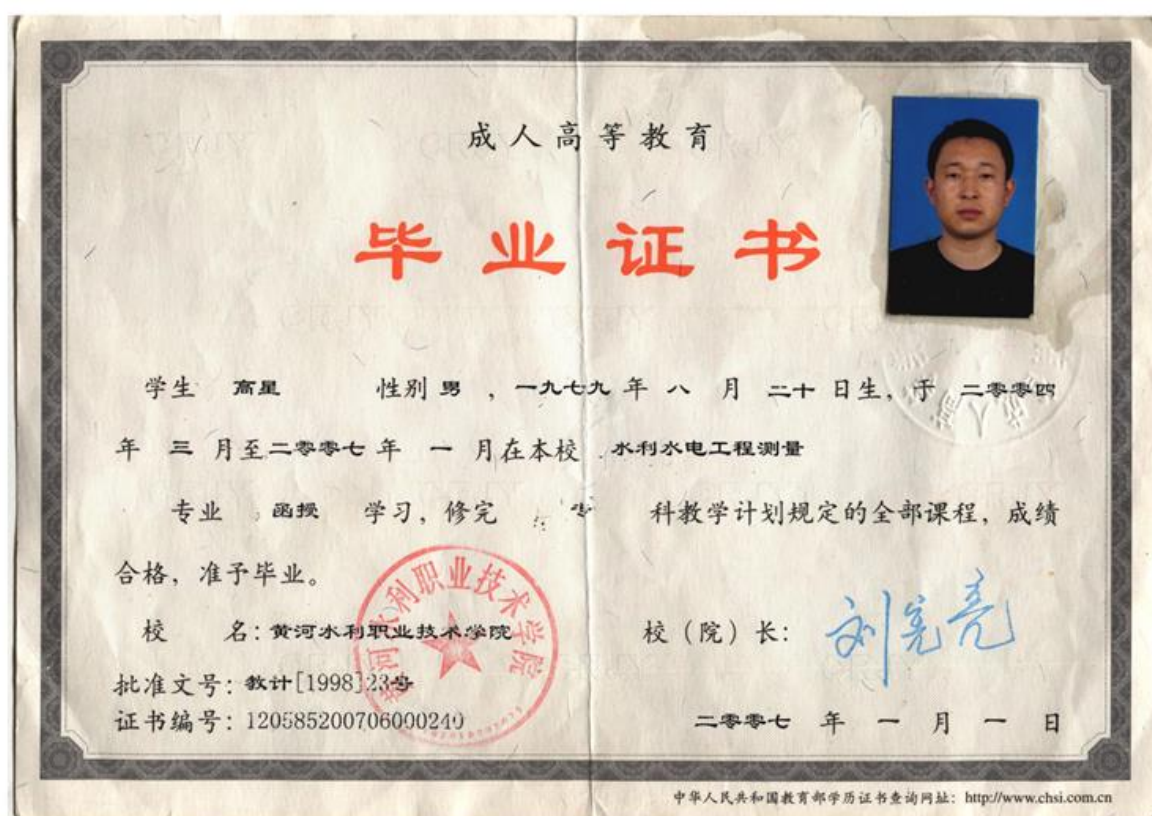 成人高等教育
毕业证书
学生 高星 性别 男 ，一九七九 年 八 月 二十 日生，于 二零零四
年 三 月至二零零七 年 一 月在本校 水利水电工程测量
专业 函授 学习，修完 专 科教学计划规定的全部课程，成绩
合格，准予毕业。
校 名：黄河水利职业技术学院
校（院）长：刘宪亮
批准文号：教计[1998]23号
证书编号：120585200706000240
二零零七 年 一 月 一 日
黄河水利职业技术学院
中华人民共和国教育部学历证书查询网址：http://www.chsi.com.cn